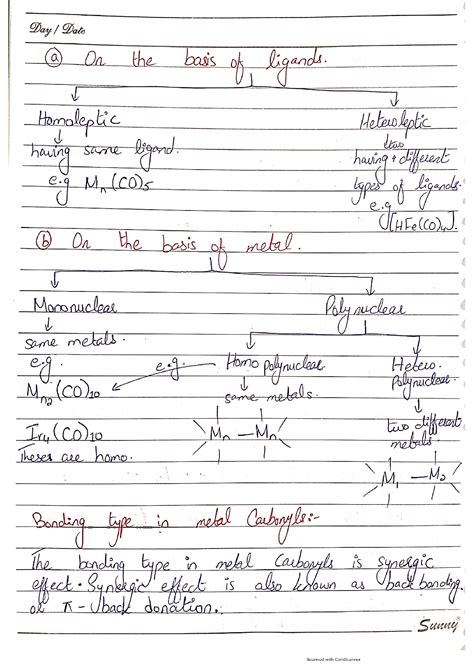 Day / Date
(a) On the basis of ligands.
Homoleptic Heteroleptic
having same ligand. having two different
e.g Mn(CO)5 types of ligands.
e.g
[HFe(CO)4].
(b) On the basis of metal.
Mononuclear Polynuclear
same metals.
e.g. e.g. Homo polynuclear Hetero.
Polynuclear
Mn2(CO)10 same metals.
Ir4(CO)10 Mn — Mn two different
metals.
Theses are homo.
M1 — M2
Bonding type in metal Carbonyls:-
The bonding type in metal Carbonyls is synergic
effect. Synergic effect is also known as back bonding.
or π - back donation.
Sunny
Scanned with CamScanner